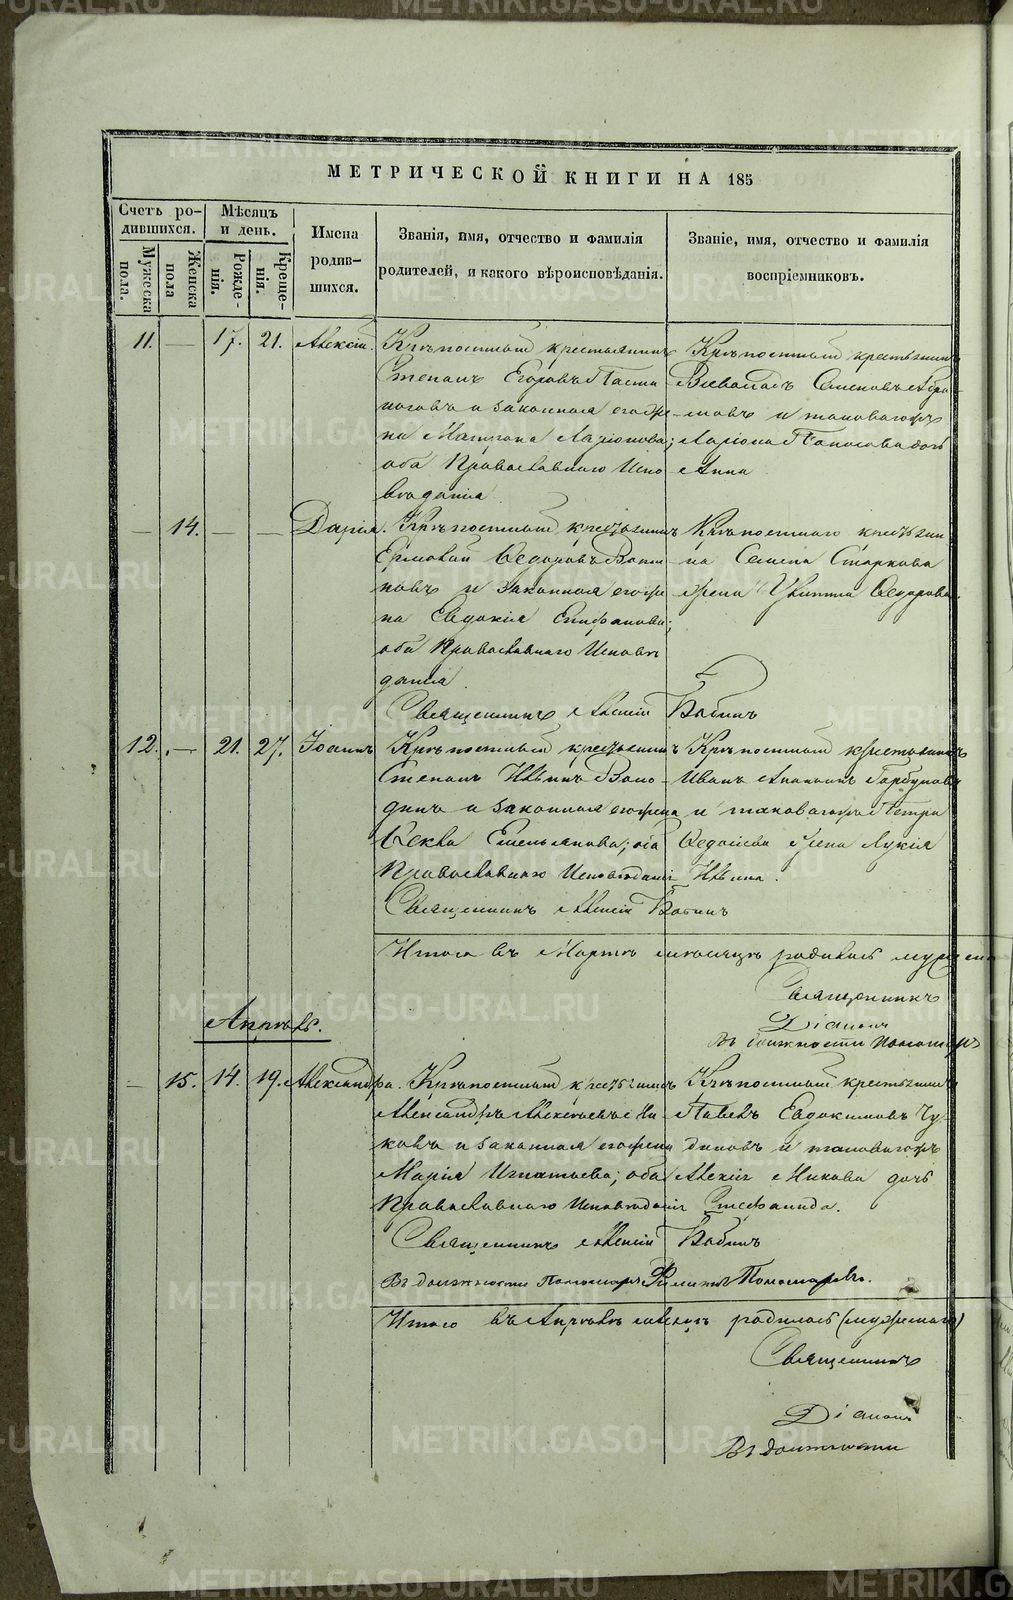 МЕТРИЧЕСКОЙ КНИГИ НА 185
Счетъ ро-
дившихся.
Мѣсяцъ
и день.
Имена
родив-
шихся.
Званія, имя, отчество и фамилія
родителей, и какого вѣроисповѣданія.
Званіе, имя, отчество и фамилія
воспріемниковъ.
Мужеска
пола.
Женска
пола
Рожде-
нія.
Креще-
нія.
11. — 17. 21. Алексій. Крѣпостный крестьянинъ
Степанъ Егоровъ
и законная его же-
на Матрона Ларіонова;
оба Православнаго Испо
вѣданія
Крѣпостный крестьянинъ
Семеновъ
и таковагожъ
Ларіона дочь
Анна
— 14. — — Дарія. Крѣпостный крестьянинъ
Ермолай Ѳедоровъ
новъ и законная его же-
на Евдокія Епифанова;
оба Православнаго Исповѣ
данія
Крѣпостнаго крестьяни
на Семена Старкова
жена Ѳедорова
Священникъ Алексій Бабинъ
12. — 21. 27. Іоаннъ Крѣпостный крестьянинъ
Степанъ Ильинъ Воло-
динъ и законная его жена
Ѳекла Емельянова; оба
Православнаго Исповѣданія
Крѣпостный крестьянинъ
Иванъ Горбуновъ
и таковагожъ Петра
Ѳедосѣева жена Лукія
Ильина.
Священникъ Алексій Бабинъ
Итого въ Мартѣ мѣсяцѣ родилось мужеска
Священникъ
Діаконъ
Въ должности Пономаря
Апрѣль.
— 15. 14. 19. Александра. Крѣпостный крестьянинъ
Александръ Алексѣевъ Ни
ковъ и законная его жена
Марія Игнатьева; оба
Православнаго Исповѣданія
Крѣпостный крестьянинъ
Павелъ Евдокимовъ Чу-
диновъ и таковагожъ
Алексія Никова дочь
Стефанида.
Священникъ Алексій Бабинъ
Въ должности Пономаря Филиппъ Пономаревъ.
Итого въ Апрѣлѣ мѣсяцѣ родилось (мужескаго)
Священникъ
Діаконъ
Въ должности
METRIKI.GASO-URAL.RU